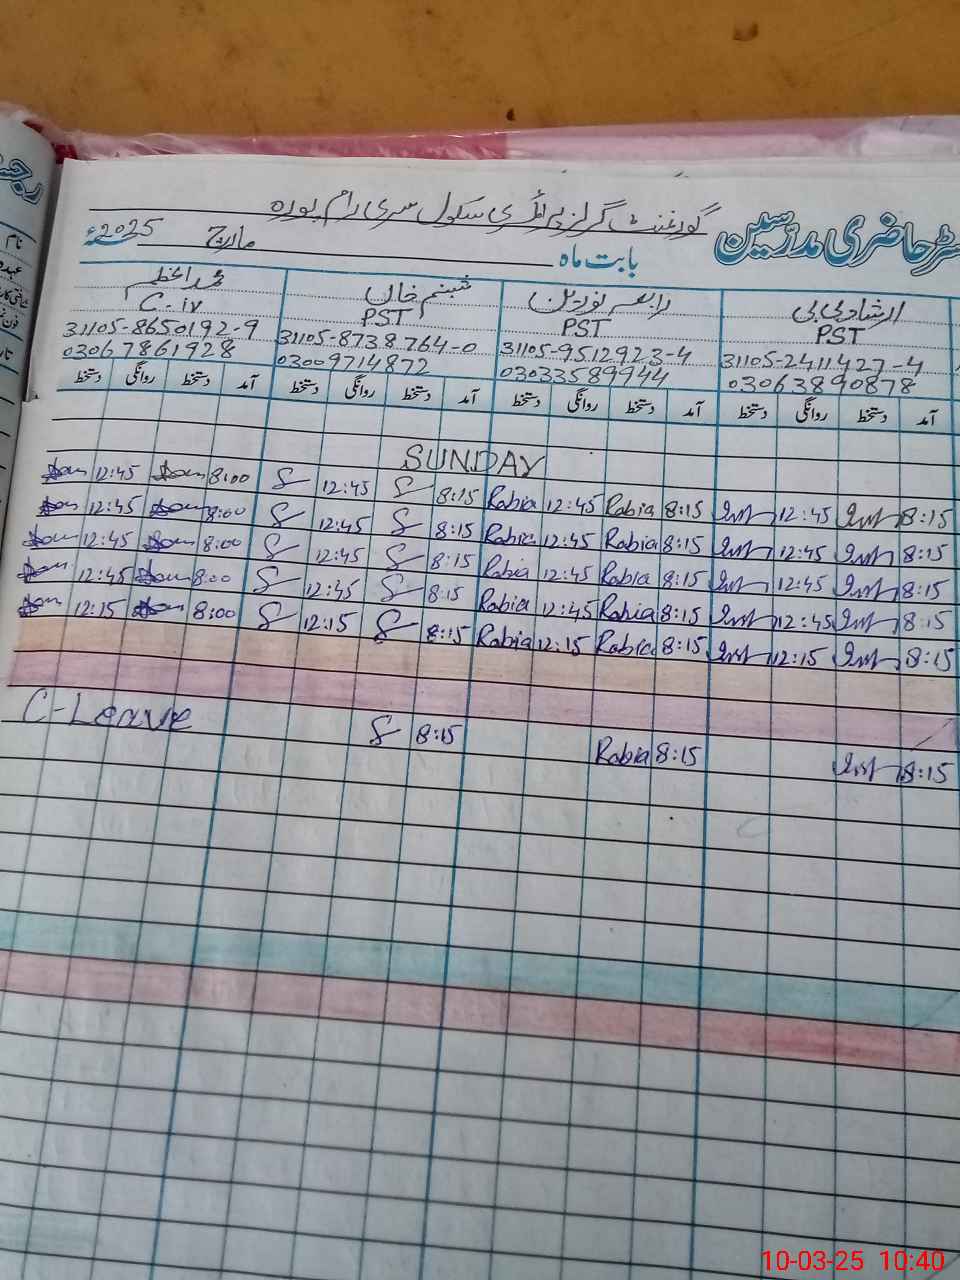 گورنمنٹ گرلز پرائمری سکول سری رام پورہ
رجسٹر حاضری مدرسین
بابت ماہ مارچ 2025ء
نام
ارشاد بی بی رابعہ نورین شبنم خان محمد اعظم
PST PST PST C-iv
31105-2411427-4 31105-9512923-4 31105-8738764-0 31105-8650192-9
03063890878 03033589944 03009714872 03067861928
آمد دستخط روانگی دستخط آمد دستخط روانگی دستخط آمد دستخط روانگی دستخط آمد دستخط روانگی دستخط
SUNDAY
12:45 8:00 12:45 8:15 Rabia 12:45 Rabia 8:15 12:45 8:15
12:45 8:00 12:45 8:15 Rabia 12:45 Rabia 8:15 12:45 8:15
12:45 8:00 12:45 8:15 Rabia 12:45 Rabia 8:15 12:45 8:15
12:45 8:00 12:45 8:15 Rabia 12:45 Rabia 8:15 12:45 8:15
12:15 8:00 12:15 8:15 Rabia 12:15 Rabia 8:15 12:15 8:15
C-Leave 8:15 Rabia 8:15 8:15
10-03-25 10:40